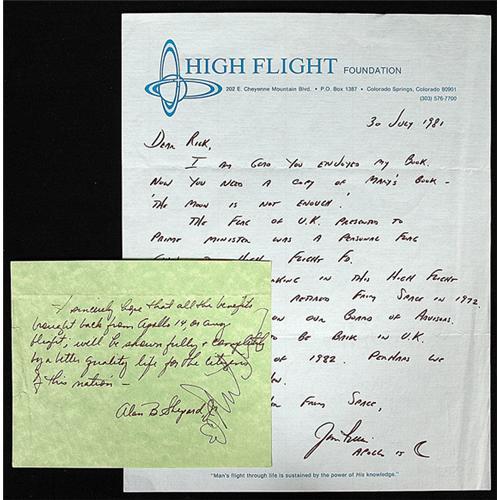 HIGH FLIGHT FOUNDATION
202 E. Cheyenne Mountain Blvd. • P.O. Box 1387 • Colorado Springs, Colorado 80901
(303) 576-7700
30 July 1981
Dear Rick,
I am glad you enjoyed my book.
Now you need a copy of Mary's book -
'The Moon is not enough'.
The flag of U.K. presented to
Prime Minister was a personal flag
High Flight
in this High Flight
retired from space in 1972.
on our Board of Advisors.
to be back in U.K.
of 1982. Perhaps we
from Space,
Jim Irwin
Apollo 15
"Man's flight through life is sustained by the power of His knowledge."
I sincerely hope that all the benefits
brought back from Apollo 14 or any
flight, will be shown fully & completely
by a better quality life for the citizens
of this nation -
Alan B. Shepard Jr.